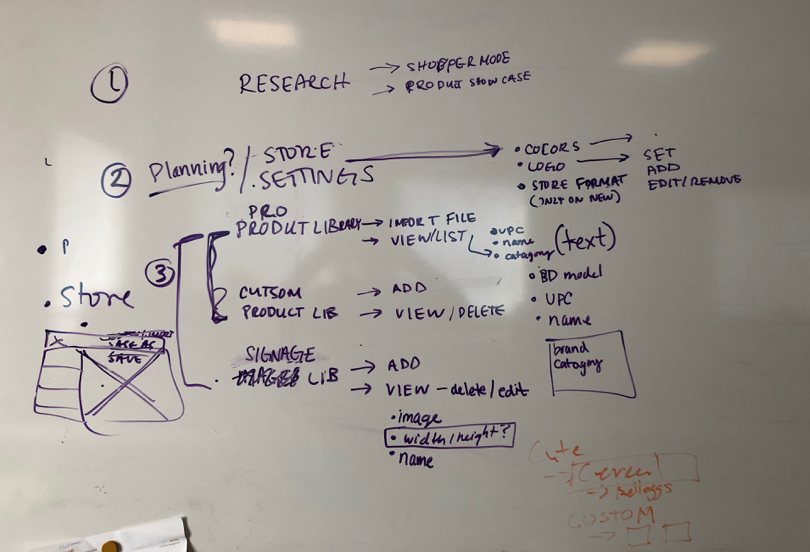 ① RESEARCH → SHOPPER MODE
→ PRODUCT SHOWCASE
② Planning? / STORE SETTINGS → • COLORS →
• LOGO → SET
ADD
• STORE FORMAT EDIT/REMOVE
(ONLY ON NEW)
③ PRO
PRODUT LIBRARY → IMPORT FILE
→ VIEW/LIST
• UPC
• name
• catagory (text)
• P
• Store
CUTSOM → ADD
PRODUCT LIB → VIEW / DELETE
• BD model
• UPC
• name
brand
catagory
SAVE AS
SAVE
SIGNAGE
LIB → ADD
→ VIEW – delete / edit
• image
• width/height?
• name
Cereal
→ Kelloggs
CUSTOM
→